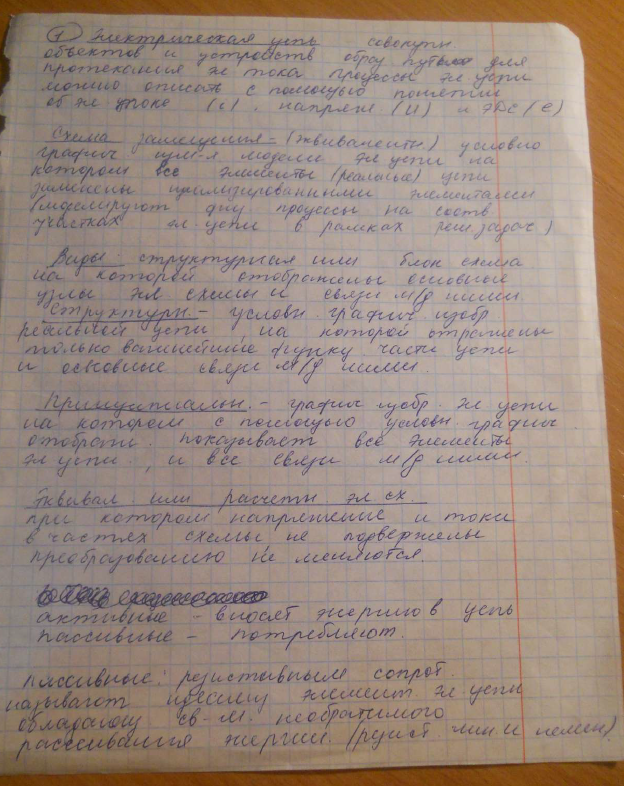 ① Электрическая цепь совокупн
объектов и устройств образ путь для
протекания эл тока процессы эл цепи
можно описать с помощью понятий
об эл токе (i), напряж (U) и ЭДС (e)
Схема замещения - (эквивалентн.) условно
графич модели эл цепи на
котором все элементы (реальные) цепи
заменены идеализированными элементами
(моделируют физ процессы на соотв
участках эл цепи в рамках реш задач)
Виды: структурная или блок схема
на которой отображены основные
узлы эл схемы и связи м/д ними
Структурн. - условн графич изобр
реальной цепи, на которой отражены
только важнейшие функц части цепи
и основные связи м/д ними.
Принципиальн. - графич изобр. эл цепи
на котором с помощью условн графич
отображ. показывает все элементы
эл цепи, и все связи м/д ними.
Эквивал или расчетн эл сх.
при котором напряжение и токи
в частях схемы не подвержены
преобразованию не меняются.
активные - вносят энергию в цепь
пассивные - потребляют.
пассивные: резистивным сопрот.
называют идеализ элемент эл цепи
обладающ св-м необратимого
рассеивания энергии. (резист. лин. и нелин)